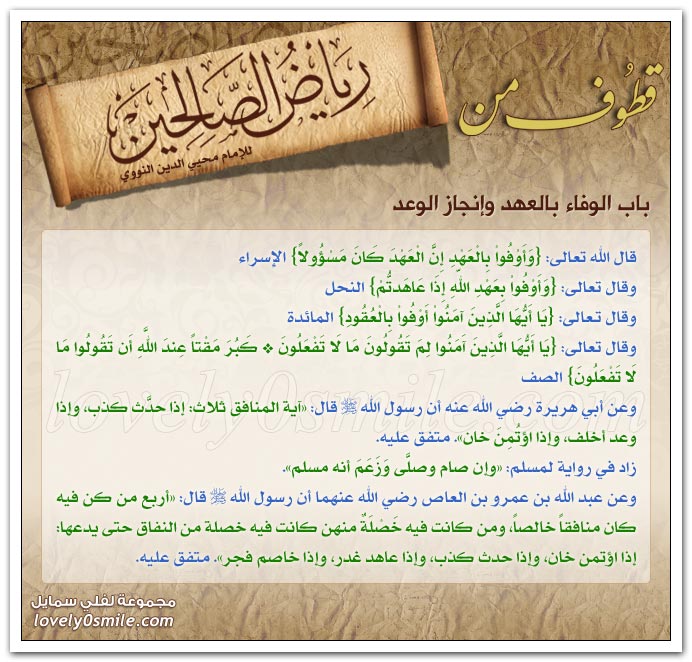 قطوف من
رياض الصالحين
للإمام محيي الدين النووي
باب الوفاء بالعهد وإنجاز الوعد
قال الله تعالى: {وَأَوْفُواْ بِالْعَهْدِ إِنَّ الْعَهْدَ كَانَ مَسْؤُولاً} الإسراء
وقال تعالى: {وَأَوْفُواْ بِعَهْدِ اللّهِ إِذَا عَاهَدتُّمْ} النحل
وقال تعالى: {يَا أَيُّهَا الَّذِينَ آمَنُواْ أَوْفُواْ بِالْعُقُودِ} المائدة
وقال تعالى: {يَا أَيُّهَا الَّذِينَ آمَنُوا لِمَ تَقُولُونَ مَا لا تَفْعَلُونَ ❖ كَبُرَ مَقْتاً عِندَ اللَّهِ أَن تَقُولُوا مَا
لَا تَفْعَلُونَ} الصف
وعن أبي هريرة رضي الله عنه أن رسول الله ﷺ قال: «آية المنافق ثلاث: إذا حدَّث كذب، وإذا
وعد أخلف، وإذا اؤتُمِنَ خان». متفق عليه.
زاد في رواية لمسلم: «وإن صام وصلَّى وَزَعَمَ أنه مسلم».
وعن عبد الله بن عمرو بن العاص رضي الله عنهما أن رسول الله ﷺ قال: «أربع من كن فيه
كان منافقاً خالصاً، ومن كانت فيه خَصْلَةٌ منهن كانت فيه خصلة من النفاق حتى يدعها:
إذا اؤتمن خان، وإذا حدث كذب، وإذا عاهد غدر، وإذا خاصم فجر». متفق عليه.
lovely0smile.com
مجموعة لفلي سمايل
lovely0smile.com